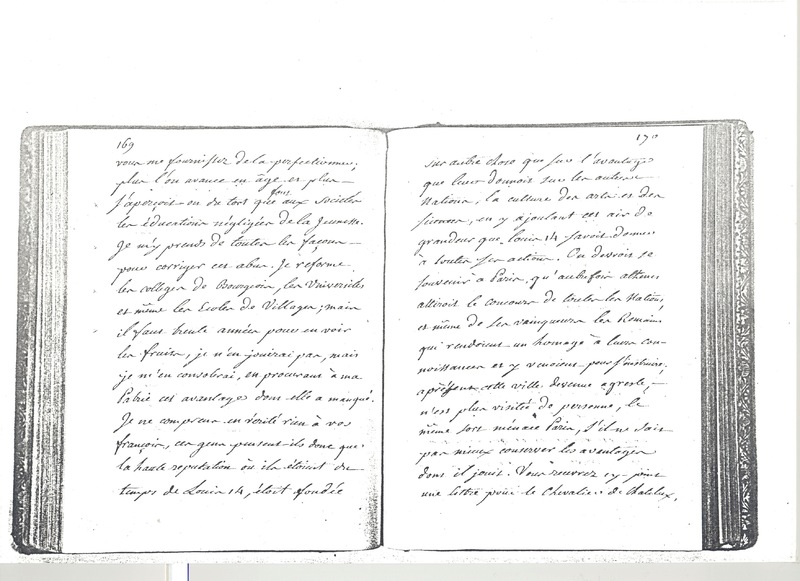 169
vous me fournissez de la perfectionner;
plus l'on avance en âge et plus
s'aperçoit on du tort que font aux Societés
les éducations négligées de la Jeunesse.
Je m'y prends de toutes les façons
pour corriger cet abus. Je reforme
les colleges de Bourgeois, les Universités
et même les Ecoles de Villages; mais
il faut trente années pour en voir
les fruits, je n'en jouirai pas, mais
je m'en consolerai, en procurant à ma
Patrie cet avantage dont elle a manqué.
Je ne comprens en vérité rien à vos
françois, ces gens pensent-ils donc que
la haute reputation où ils étoient du
temps de Louis 14, étoit fondée
170
sur autre chose que sur l'avantage
que leur donnoit sur les autres
Nations, la culture des arts et des
sciences, en y ajoutant cet air de
grandeur que Louis 14 savoit donner
à toutes ses actions. On devroit se
souvenir à Paris, qu'autrefois athenes
attiroit le concours de toutes les Nations,
et même de ses vainqueurs les Romains
qui rendoient un hommage à leurs con-
noissances et y venoient pour s'instruire.
apresent cette ville devenue agreste,
n'est plus visitée de personne, le
même sort menace Paris, s'il ne sait
pas mieux conserver les avantages
dont il jouit. Vous recevrez cy-joint
une lettre pour le Chevalier de Chatelux,